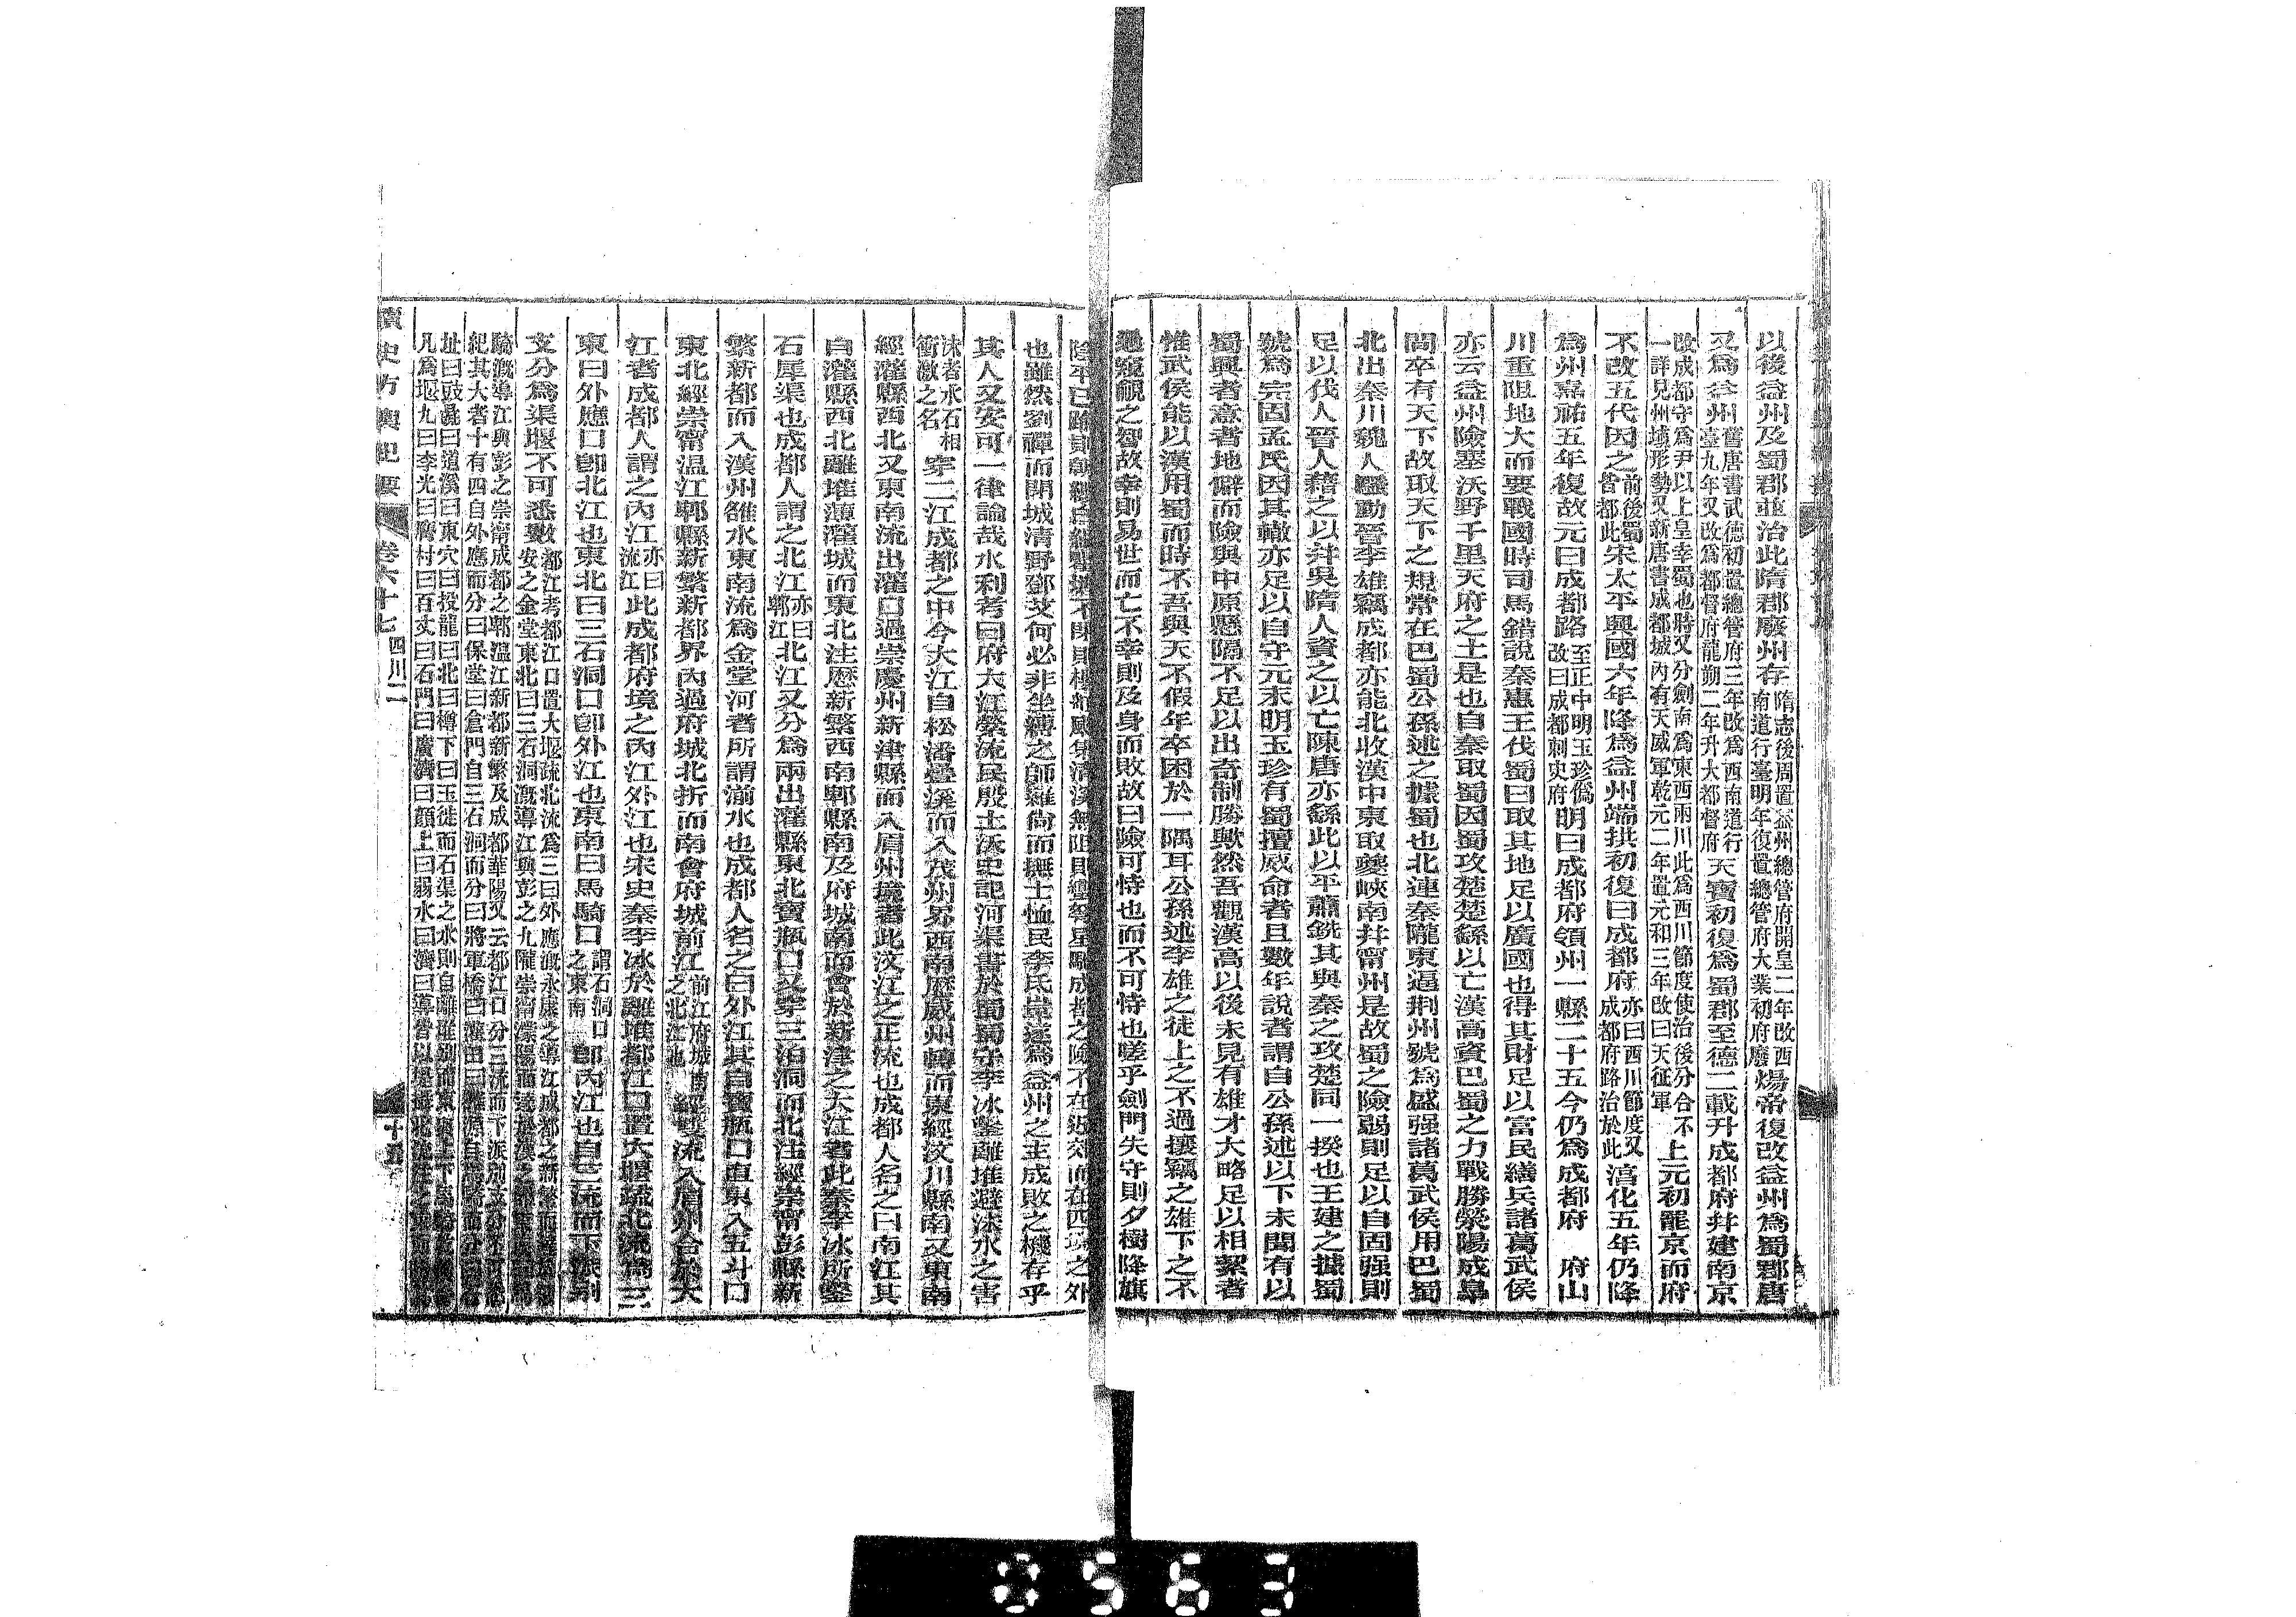 以後益州及蜀郡並治此隋郡廢州存隋志後周置益州總管府開皇二年改西南道行臺明年復置總管府大業初府廢煬帝復改益州爲蜀郡唐
又爲益州舊唐書武德初置總管府三年改爲西南道行臺九年又改爲都督府龍朔二年升大都督府天寶初復爲蜀郡至德二載升成都府幷建南京
改成都守爲尹以上皇幸蜀也時又分劍南爲東西兩川此爲西川節度使治後分合不一詳見州域形勢又新唐書成都城內有天威軍乾元二年置元和三年改曰天征軍上元初罷京而府
不改五代因之前後蜀皆都此宋太平興國六年降爲益州端拱初復曰成都府亦曰西川節度又成都府路治於此淳化五年仍降
爲州嘉祐五年復故元曰成都路至正中明玉珍僞改曰成都刺史府明曰成都府領州一縣二十五今仍爲成都府　府山
川重阻地大而要戰國時司馬錯說秦惠王伐蜀曰取其地足以廣國也得其財足以富民繕兵諸葛武侯
亦云益州險塞沃野千里天府之土是也自秦取蜀因蜀攻楚楚繇以亡漢高資巴蜀之力戰勝滎陽成皐
間卒有天下故取天下之規常在巴蜀公孫述之據蜀也北連秦隴東逼荆州號爲盛强諸葛武侯用巴蜀
北出秦川魏人騷動晉李雄竊成都亦能北收漢中東取夔峽南幷甯州是故蜀之險弱則足以自固强則
足以伐人晉人藉之以幷吳隋人資之以亡陳唐亦繇此以平蕭銑其與秦之攻楚同一揆也王建之據蜀
號爲完固孟氏因其轍亦足以自守元末明玉珍有蜀擅威命者且數年說者謂自公孫述以下未聞有以
蜀興者意者地僻而險與中原懸隔不足以出奇制勝歟然吾觀漢高以後未見有雄才大略足以相絜者
惟武侯能以漢用蜀而時不吾與天不假年卒困於一隅耳公孫述李雄之徒上之不過攘竊之雄下之不
窺覦之智故幸則易世而亡不幸則及身而敗故曰險可恃也而不可恃也嗟乎劍門失守則夕樹降旗
陰平已踰則成都之險不在近郊而在四境之外
也雖然劉禪而閉城清野鄧艾何必非坐縛之師雄尙而撫士恤民李氏遂爲益州之主成敗之機存乎
其人又安可一律論哉水利考曰府大江縈流民殷土沃史記河渠書於蜀蜀守李冰鑿離堆避沫水之害
沫者水石相衝激之名穿二江成都之中今大江自松潘疊溪而入茂州界西南歷威州轉而東經汶川縣南又東南
經灌縣西北又東南流出灌口過崇慶州新津縣而入眉州境者此汶江之正流也成都人名之曰南江其
自灌縣西北離堆薄灌城而東北注歷新繁西南郫縣南及府城南而會於新津之大江者此秦李冰所鑿
石犀渠也成都人謂之北江亦曰郫江北江又分爲兩出灌縣東北寶瓶口又穿三泊洞而北注經崇甯彭縣新
繁新都而入漢州雒水東南流爲金堂河者所謂湔水也成都人名之曰外江其自寶瓶口直東入五斗口
東北經崇甯温江郫縣新繁新都界內過府城北折而南會府城前江前江府城南之北江也經雙流入眉州合於大
江者成都人謂之內江亦曰流江此成都府境之內江外江也宋史秦李冰於離堆都江口置大堰疏北流爲三
東曰外應口卽北江也東北曰三石洞口卽外江也東南曰馬騎口謂石洞口之東南卽內江也自三流而下派別
支分爲渠堰不可悉數都江考都江口置大堰疏北流爲三曰外應溉永康之導江成都之新繁安之金堂東北曰三石洞溉導江與彭之九隴崇甯濛陽而
騎溉導江與彭之崇甯成都之郫溫江新都新繁及成都華陽又云都江口分三流而下派別支分不可
紀其大者十有四自外應而分曰保堂曰倉門自三石洞而分曰將軍橋曰灌田曰雒源自馬騎而分曰石
址曰豉彘曰道溪曰東穴曰投龍曰北曰樽下曰玉徙而石渠之水則自離堆別而東
凡爲堰九曰李光曰膺村曰百丈曰石門曰廣濟曰顔上曰弱水曰濟曰導皆以堤
讀史方輿紀要　卷六十七　四川二　十五
0563